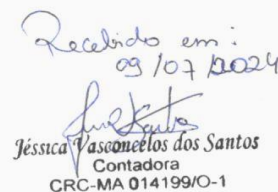 Recebido em:
09/07/2024
Jéssica Vasconcelos dos Santos
Contadora
CRC-MA 014199/O-1